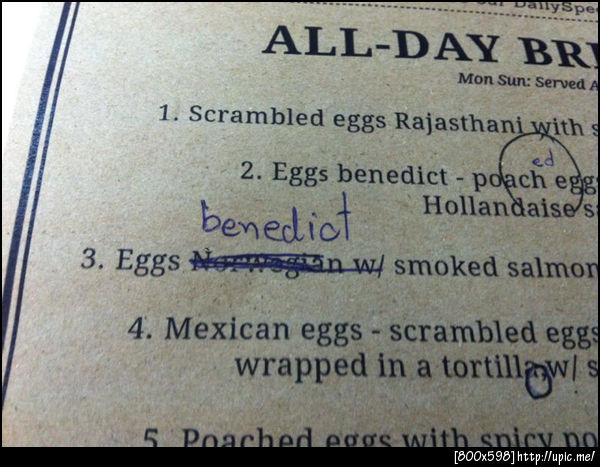 DailySpe
ALL-DAY BRE
Mon Sun: Served A
1. Scrambled eggs Rajasthani with s
ed
2. Eggs benedict - poach egg
Hollandaise s
benedict
3. Eggs Norwegian w/ smoked salmon
4. Mexican eggs - scrambled eggs
wrapped in a tortilla w/ s
5. Poached eggs with spicy po
[800x598]http://upic.me/